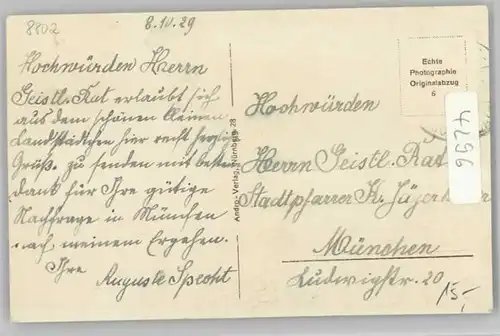 8802
8.10.29
Hochwürden Herrn
Geistl. Rat erlaubt sich
aus dem schönen kleinen
Landstädtchen hier recht herzl.
Grüß. zu senden mit besten
Dank für Ihre gütige
Nachfrage in München
nach meinem Ergehen.
Ihre
Auguste Specht
Andro-Verlag, Nürnberg 28
Echte
Photographie
Originalabzug
6
4256
Hochwürden
Herrn Geistl. Rat
Stadtpfarrer K.
München
Ludwigstr. 20
15,-